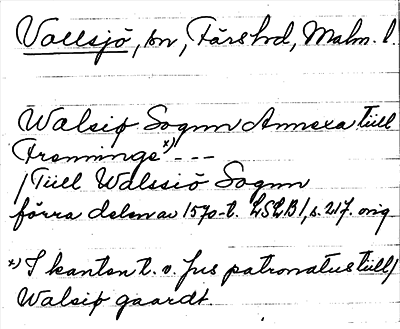 Vallsjö, sn, Färs hd, Malm. l.
Walsiø Sognn Annexa tiill
Frenninge *) - - -
/ Tiill Walssiö Sognn
förra delen av 1570-t. LSLB 1, s. 217. orig
*) I kanten t. v. Jus patronatus tiill/
Walsiø gaardt.